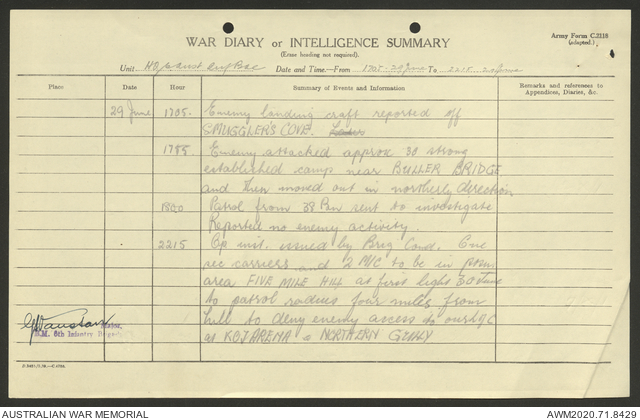 Army Form C.2118
(adapted.)
WAR DIARY or INTELLIGENCE SUMMARY
(Erase heading not required).
Unit Date and Time—From 1705 29 June To 2215 29 June
Place Date Hour Summary of Events and Information Remarks and references to Appendices, Diaries, &c.
29 June 1705. Enemy landing craft reported off
SMUGGLER'S COVE.
Enemy attacked approx 30 strong
established camp near BULLER BRIDGE
and then moved out in northerly direction
1800 Patrol from 38 Bn sent to investigate
Reported no enemy activity.
2215 Op inst. issued by Brig Comd. One
sec carriers and 2 M/C to be in
area FIVE MILE HILL at first light 30 June
to patrol radius four miles from
hill to deny enemy access to
at KOJARENA NORTHERN GULLY
Major,
B.M. 6th Infantry Brigade
AUSTRALIAN WAR MEMORIAL
AWM2020.71.8429